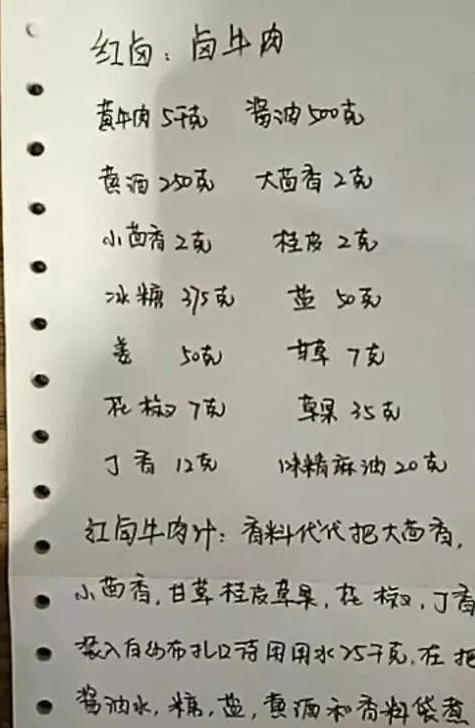 红卤：卤牛肉
黄牛肉5千克 酱油500克
黄酒250克 大茴香2克
小茴香2克 桂皮2克
冰糖375克 盐50克
姜 50克 甘草7克
花椒7克 草果35克
丁香12克 味精麻油20克
红卤牛肉汁：香料代代把大茴香，
小茴香，甘草桂皮草果，花椒，丁香
装入白纱布扎口待用用水25千克，在把
酱油水，糖，盐，黄酒和香料袋煮